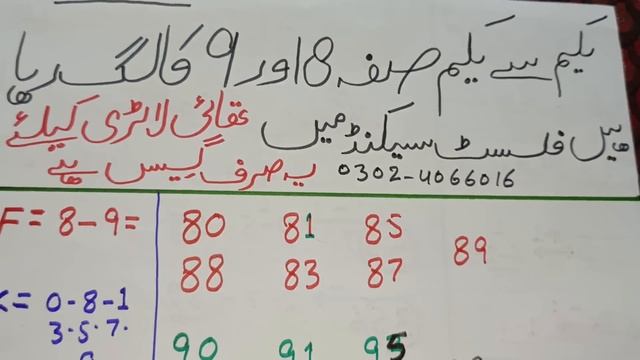 یکم سے یکم صرف 8 اور 9 کا لگ رہا
ھیں فلسٹ سیکنڈ میں عقائی لاٹری کیلئے
0302-4066016 یہ صرف گیس ھے
F = 8-9=
80 81 85
89
88 83 87
= 0-8-1
3.5.7.
90 91 95